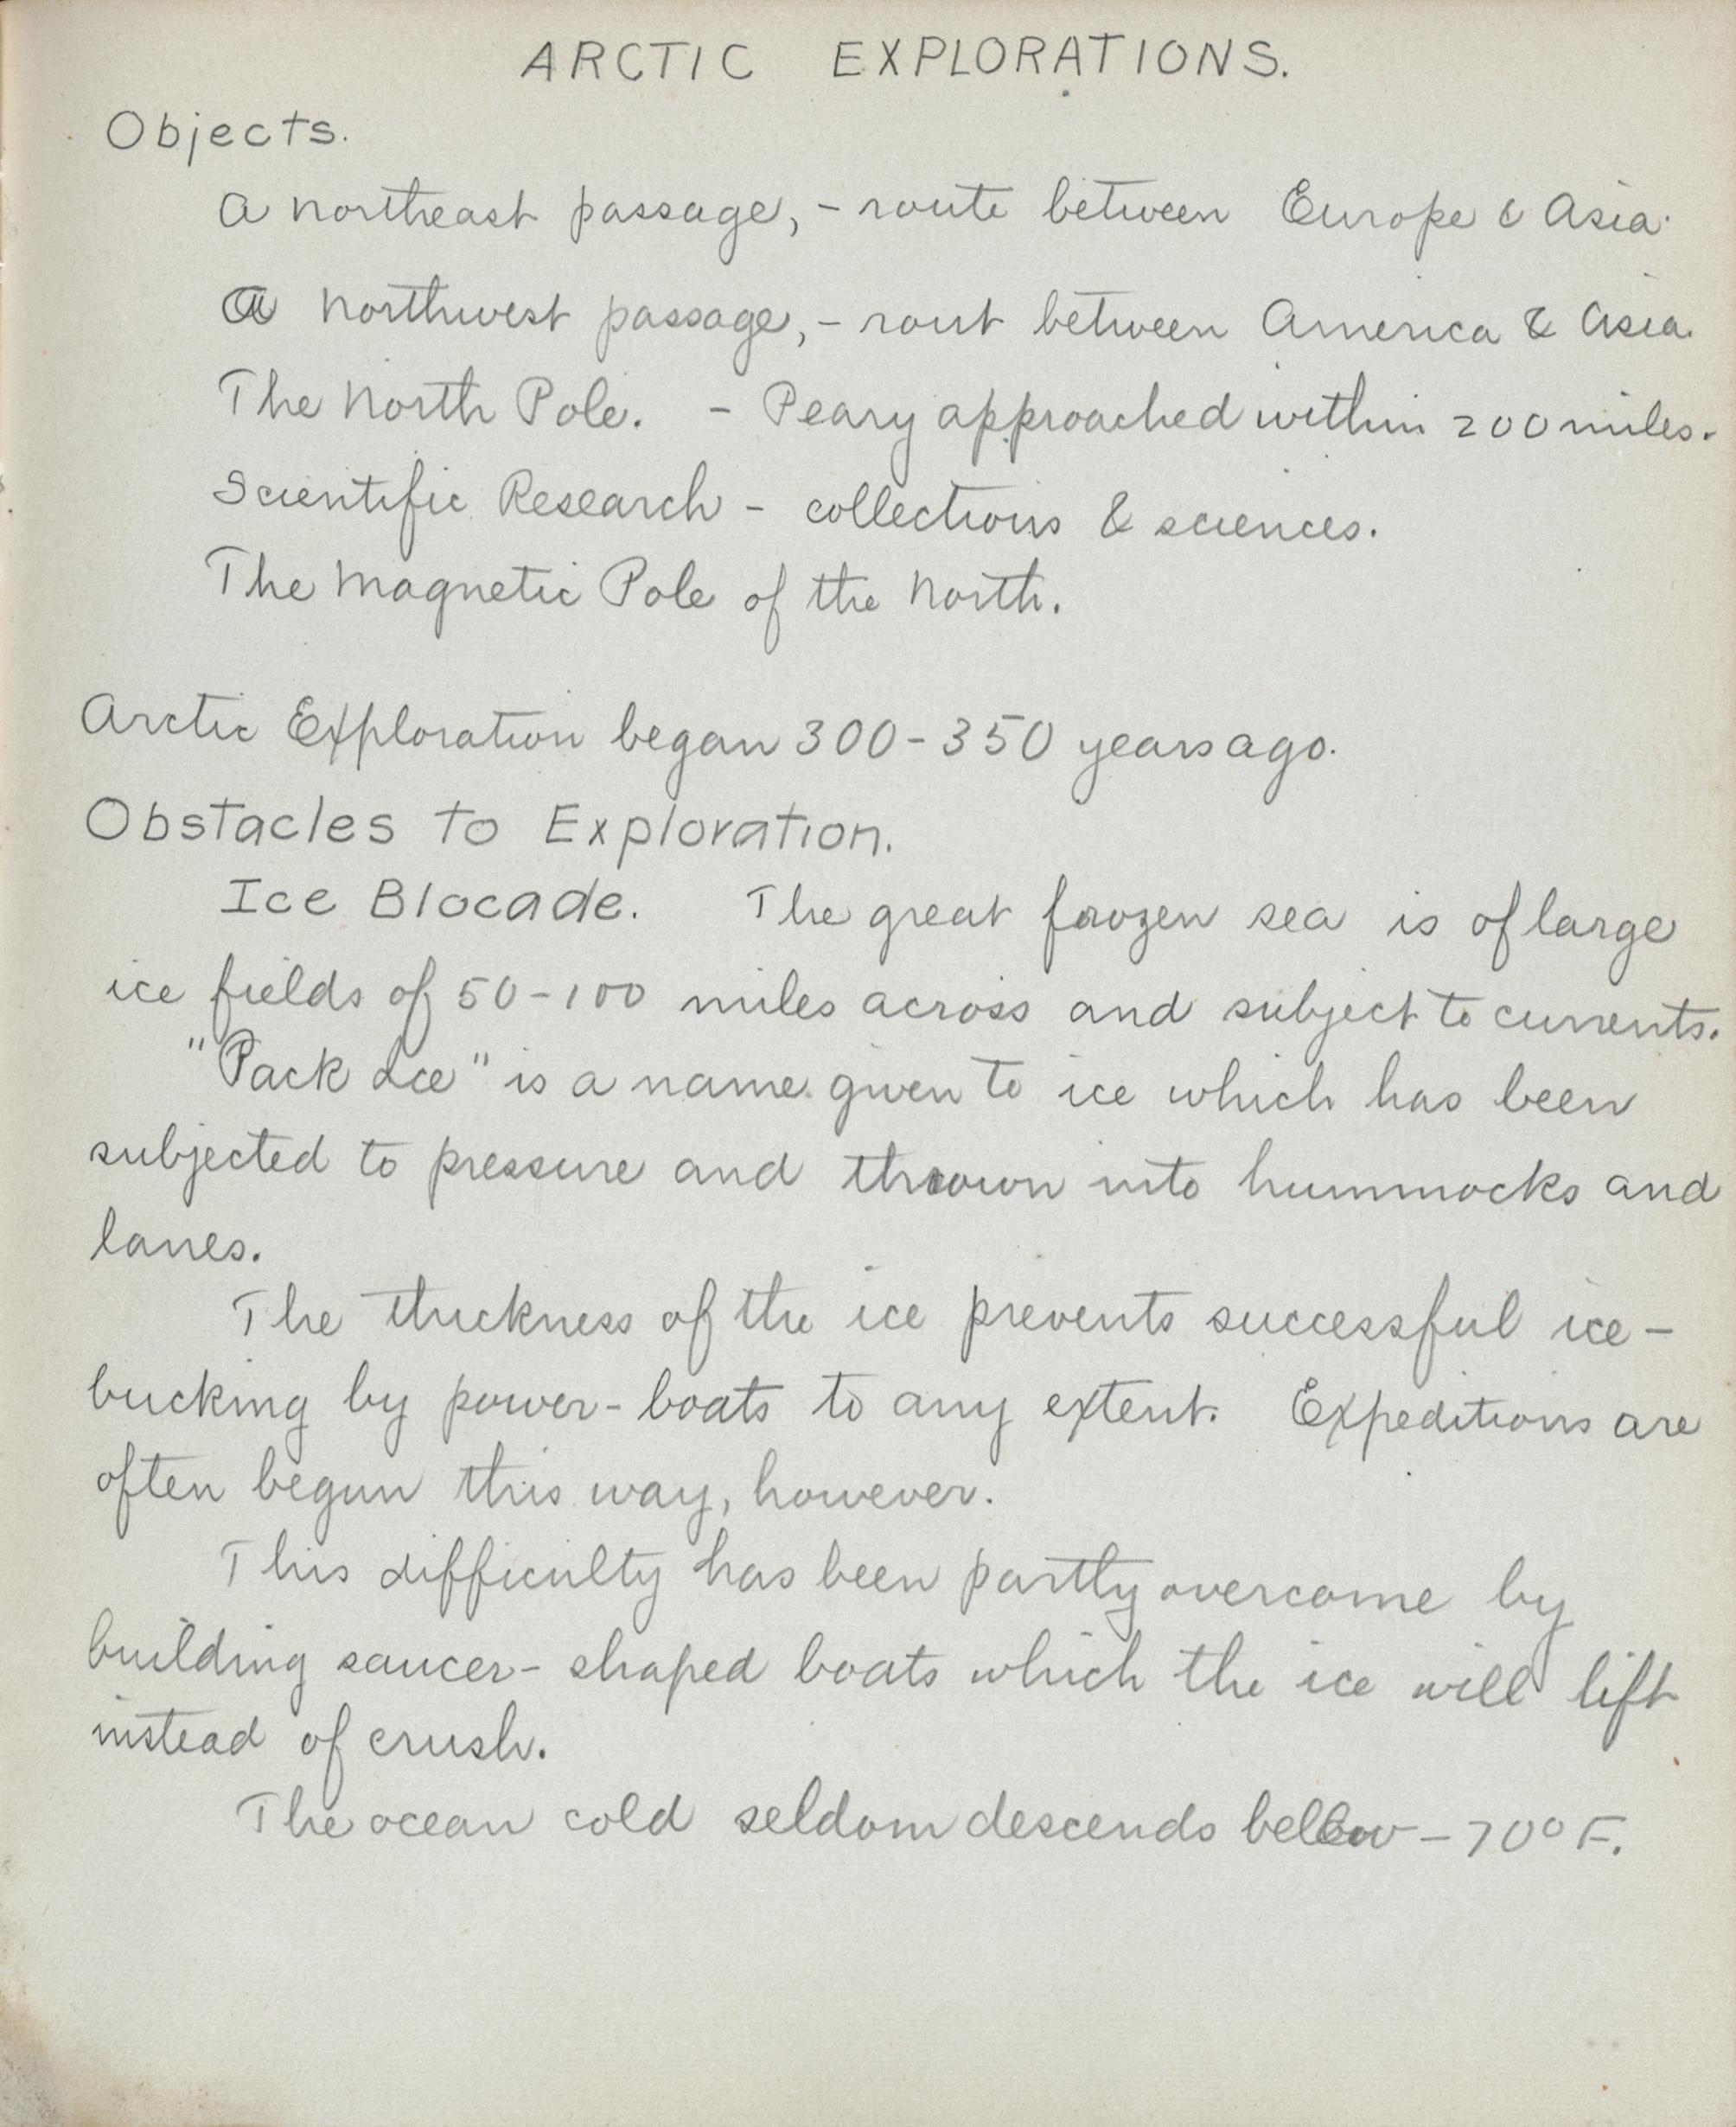 ARCTIC EXPLORATIONS.
Objects.
A northeast passage, - route between Europe & Asia.
A northwest passage, - rout between America & Asia.
The North Pole. - Peary approached within 200 miles.
Scientific Research - collections & sciences.
The Magnetic Pole of the North.
Arctic Exploration began 300-350 years ago.
Obstacles to Exploration.
Ice Blocade. The great frozen sea is of large
ice fields of 50-100 miles across and subject to currents.
"Pack Ice" is a name given to ice which has been
subjected to pressure and thrown into hummocks and
lanes.
The thickness of the ice prevents successful ice-
bucking by power-boats to any extent. Expeditions are
often begun this way, however.
This difficulty has been partly overcome by
building saucer-shaped boats which the ice will lift
instead of crush.
The ocean cold seldom descends below -70° F.